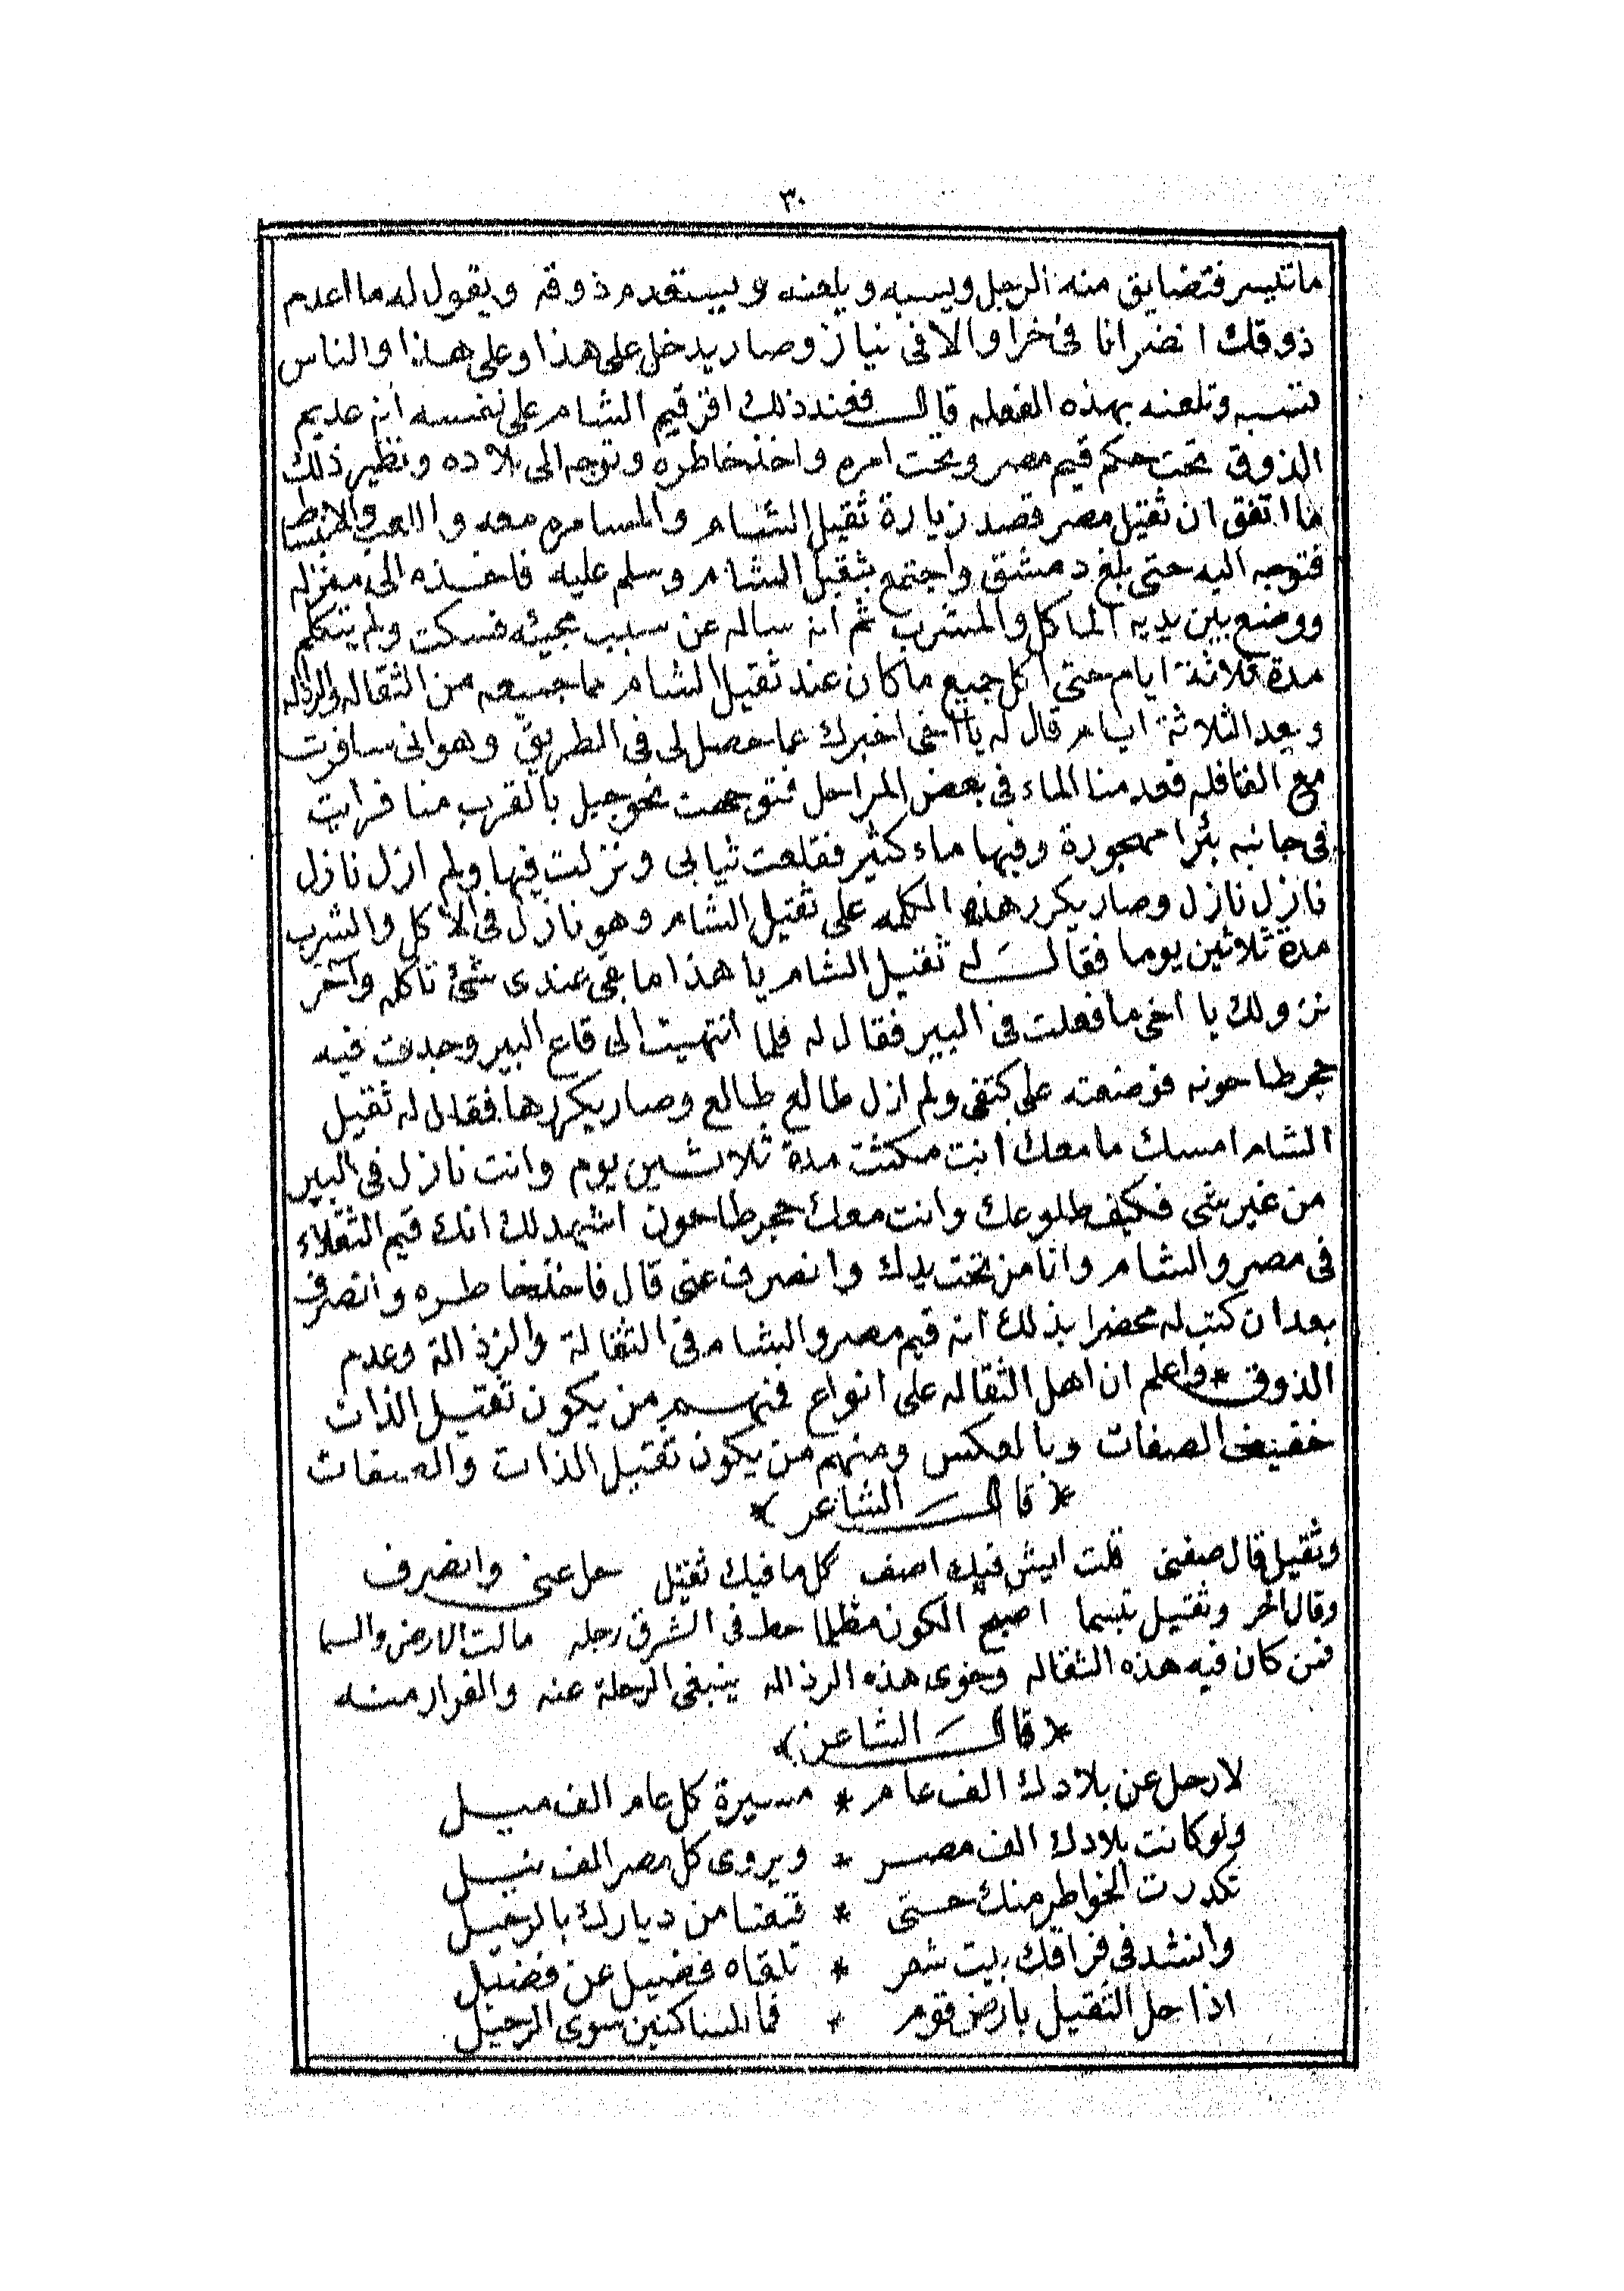 ٣٠
ما تيسر فتضايق منه الرجل ويسبه ويلعنه ويستقدم ذوقه ويقول له ما اعدم
ذوقك انضر انا فى خرا والا فى نياز وصار يدخل على هذا وعلى هذا والناس
تسبه وتلعنه بهذه الفعله قال فعند ذلك اقر قيم الشام على نفسه انه عديم
الذوق تحت حكم قيم مصر وتحت امره واخذ خاطره وتوجه الى بلاده ونظير ذلك
ما اتفق ان ثقيل مصر قصد زيارة ثقيل الشام والمسامره معه واللعب والانبساط
فتوجه اليه حتى بلغ دمشق واجتمع بثقيل الشام وسلم عليه فاخذه الى منزله
ووضع بين يديه الماكل والمشرب ثم انه ساله عن سبب مجيئه فسكت ولم يتكلم
مدة ثلاثة ايام حتى اكل جميع ما كان عند ثقيل الشام مما جمعه من الثقاله والرذاله
وبعد الثلاثة ايام قال له يا اخى اخبرك عما حصل لى فى الطريق وهو انى سافرت
مع القافله فعدمنا الماء فى بعض المراحل فتوجهت نحو جبل بالقرب منا فرايت
فى جانبه بئرا مهجورة وفيها ماء كثير فقلعت ثيابى ونزلت فيها ولم ازل نازل
نازل نازل وصار يكرر هذه الكلمه على ثقيل الشام وهو نازل فى الاكل والشرب
مدة ثلاثين يوما فقال له ثقيل الشام يا هذا ما بقى عندى شئ تاكله وآخر
نزولك يا اخى ما فعلت فى البير فقال له فلما انتهيت الى قاع البير وجدت فيه
حجر طاحونه فوضعته على كتفى ولم ازل طالع طالع وصار يكررها فقال له ثقيل
الشام امسك ما معك انت مكثت مدة ثلاثين يوم وانت نازل فى البير
من غير شى فكيف طلوعك وانت معك حجر طاحون اشهد لك انك قيم الثقلاء
فى مصر والشام وانا من تحت يدك وانصرف عنى قال فاخذ خاطره وانصرف
بعد ان كتب له محضرا بذلك انه قيم مصر والشام فى الثقالة والرذالة وعدم
الذوق * واعلم ان اهل الثقاله على انواع فمنهم من يكون ثقيل الذات
خفيف الصفات وبالعكس ومنهم من يكون ثقيل الذات والصفات
* قال الشاعر *
وثقيل قال صفنى قلت ايش فيك اصف كل ما فيك ثقيل حل عنى وانصرف
وقال اخر وثقيل تبسما اصبح الكون مظلما حط فى الشرق رجله مالت الارض والسما
فمن كان فيه هذه الثقاله وحوى هذه الرذاله ينبغى الرحلة عنه والفرار منه
* قال الشاعر *
لارحل عن بلادك الف عام * مسيرة كل عام الف ميل
ولو كانت بلادك الف مصر * ويروى كل مصر الف نيل
تكدرت الخواطر منك حتى * قنعنا من ديارك بالرحيل
وانشد فى فراقك بيت شعر * تلقاه فضيل عن فضيل
اذا حل الثقيل بارض قوم * فما للساكنين سوى الرحيل